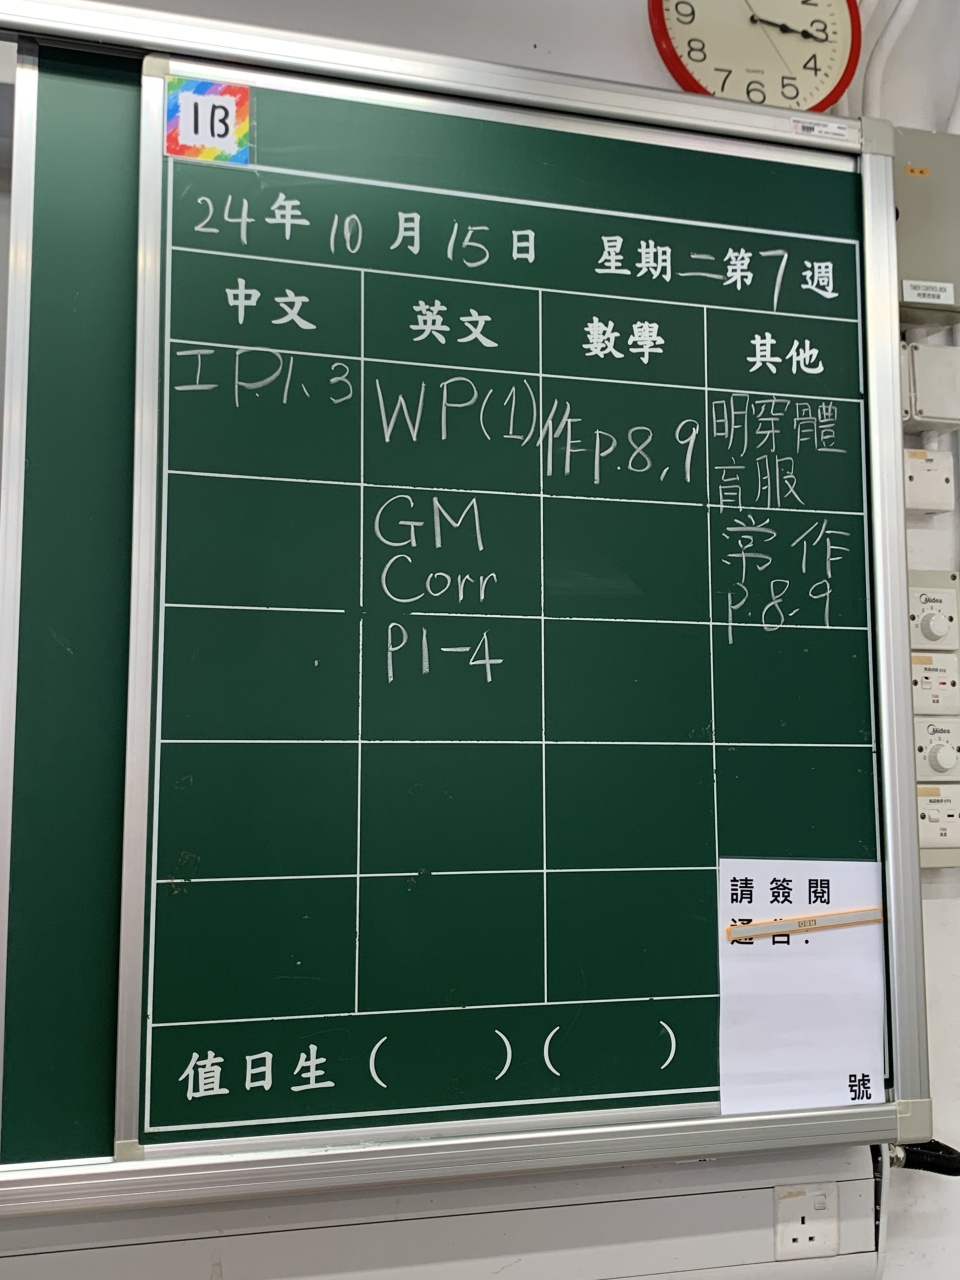 9
8
7
6
5
4
3
2
QUARTZ
1B
24年10月15日 星期二第7週
中文 英文 數學 其他
工P.1、3
WP(1)
作p.8,9
明穿體
育服
GM
Corr
常作
p.8-9
P1-4
請簽閱
通告:
號
值日生 ( ) ( )
TIMER CONTROL BOX
Midea
Midea